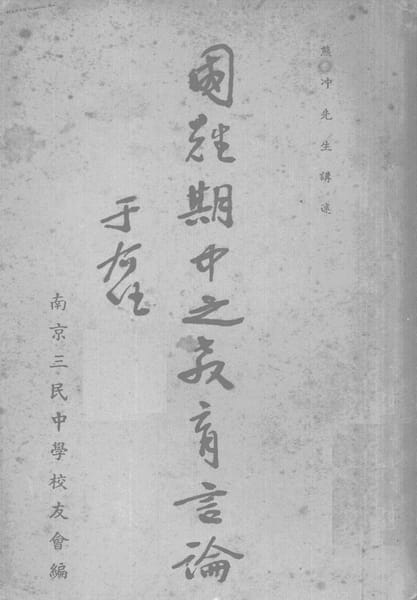 熊冲先生講
國難期中之教育言論
于右任
南京三民中學校友會編